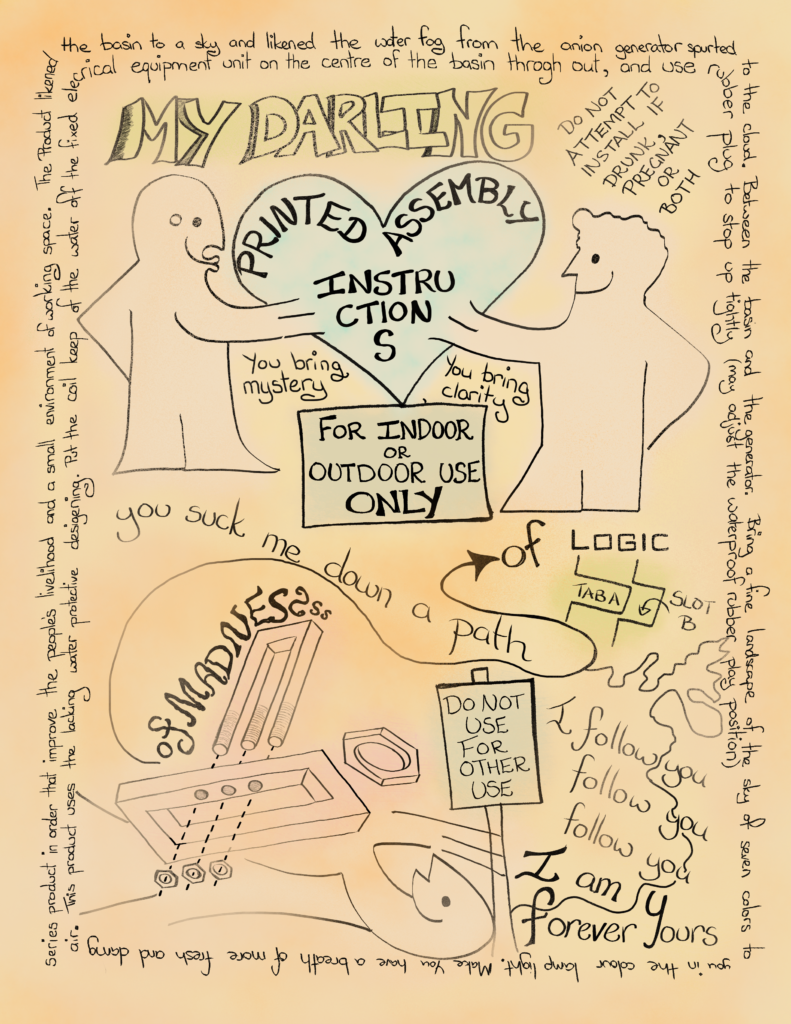 Series product in order that improve the people's livelihood and a small environment of working space. The Product likened
the basin to a sky and likened the water fog from the anion generator spurted
to the cloud. Between the basin and the generator. Bring a fine landscape of the sky of seven colors to
you in the colour lamp light. Make You have a breath of more fresh and damp
air. This product uses the lacking water protective desigering. Put the coil keep of the water off the fixed elec
trical equipment unit on the centre of the basin throgh out, and use
rubber plug to stop up tightly (may adjust the waterproof rubber play position)
MY DARLING
DO NOT
ATTEMPT TO
INSTALL IF
DRUNK,
PREGNANT
OR
BOTH
PRINTED ASSEMBLY
INSTRU
CTION
S
You bring
mystery
You bring
clarity
FOR INDOOR
OR
OUTDOOR USE
ONLY
you suck me down a path
of LOGIC
TAB A
SLOT
B
of MADNESSss
DO NOT
USE
FOR
OTHER
USE
I follow you
follow you
follow you
I am
forever Yours